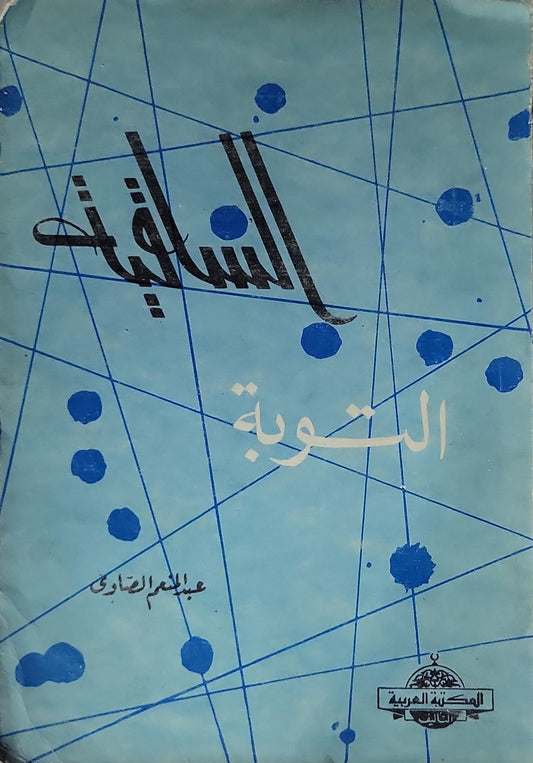 الساقية
التوبة
عبد المنعم الصاوى
المكتبة العربية